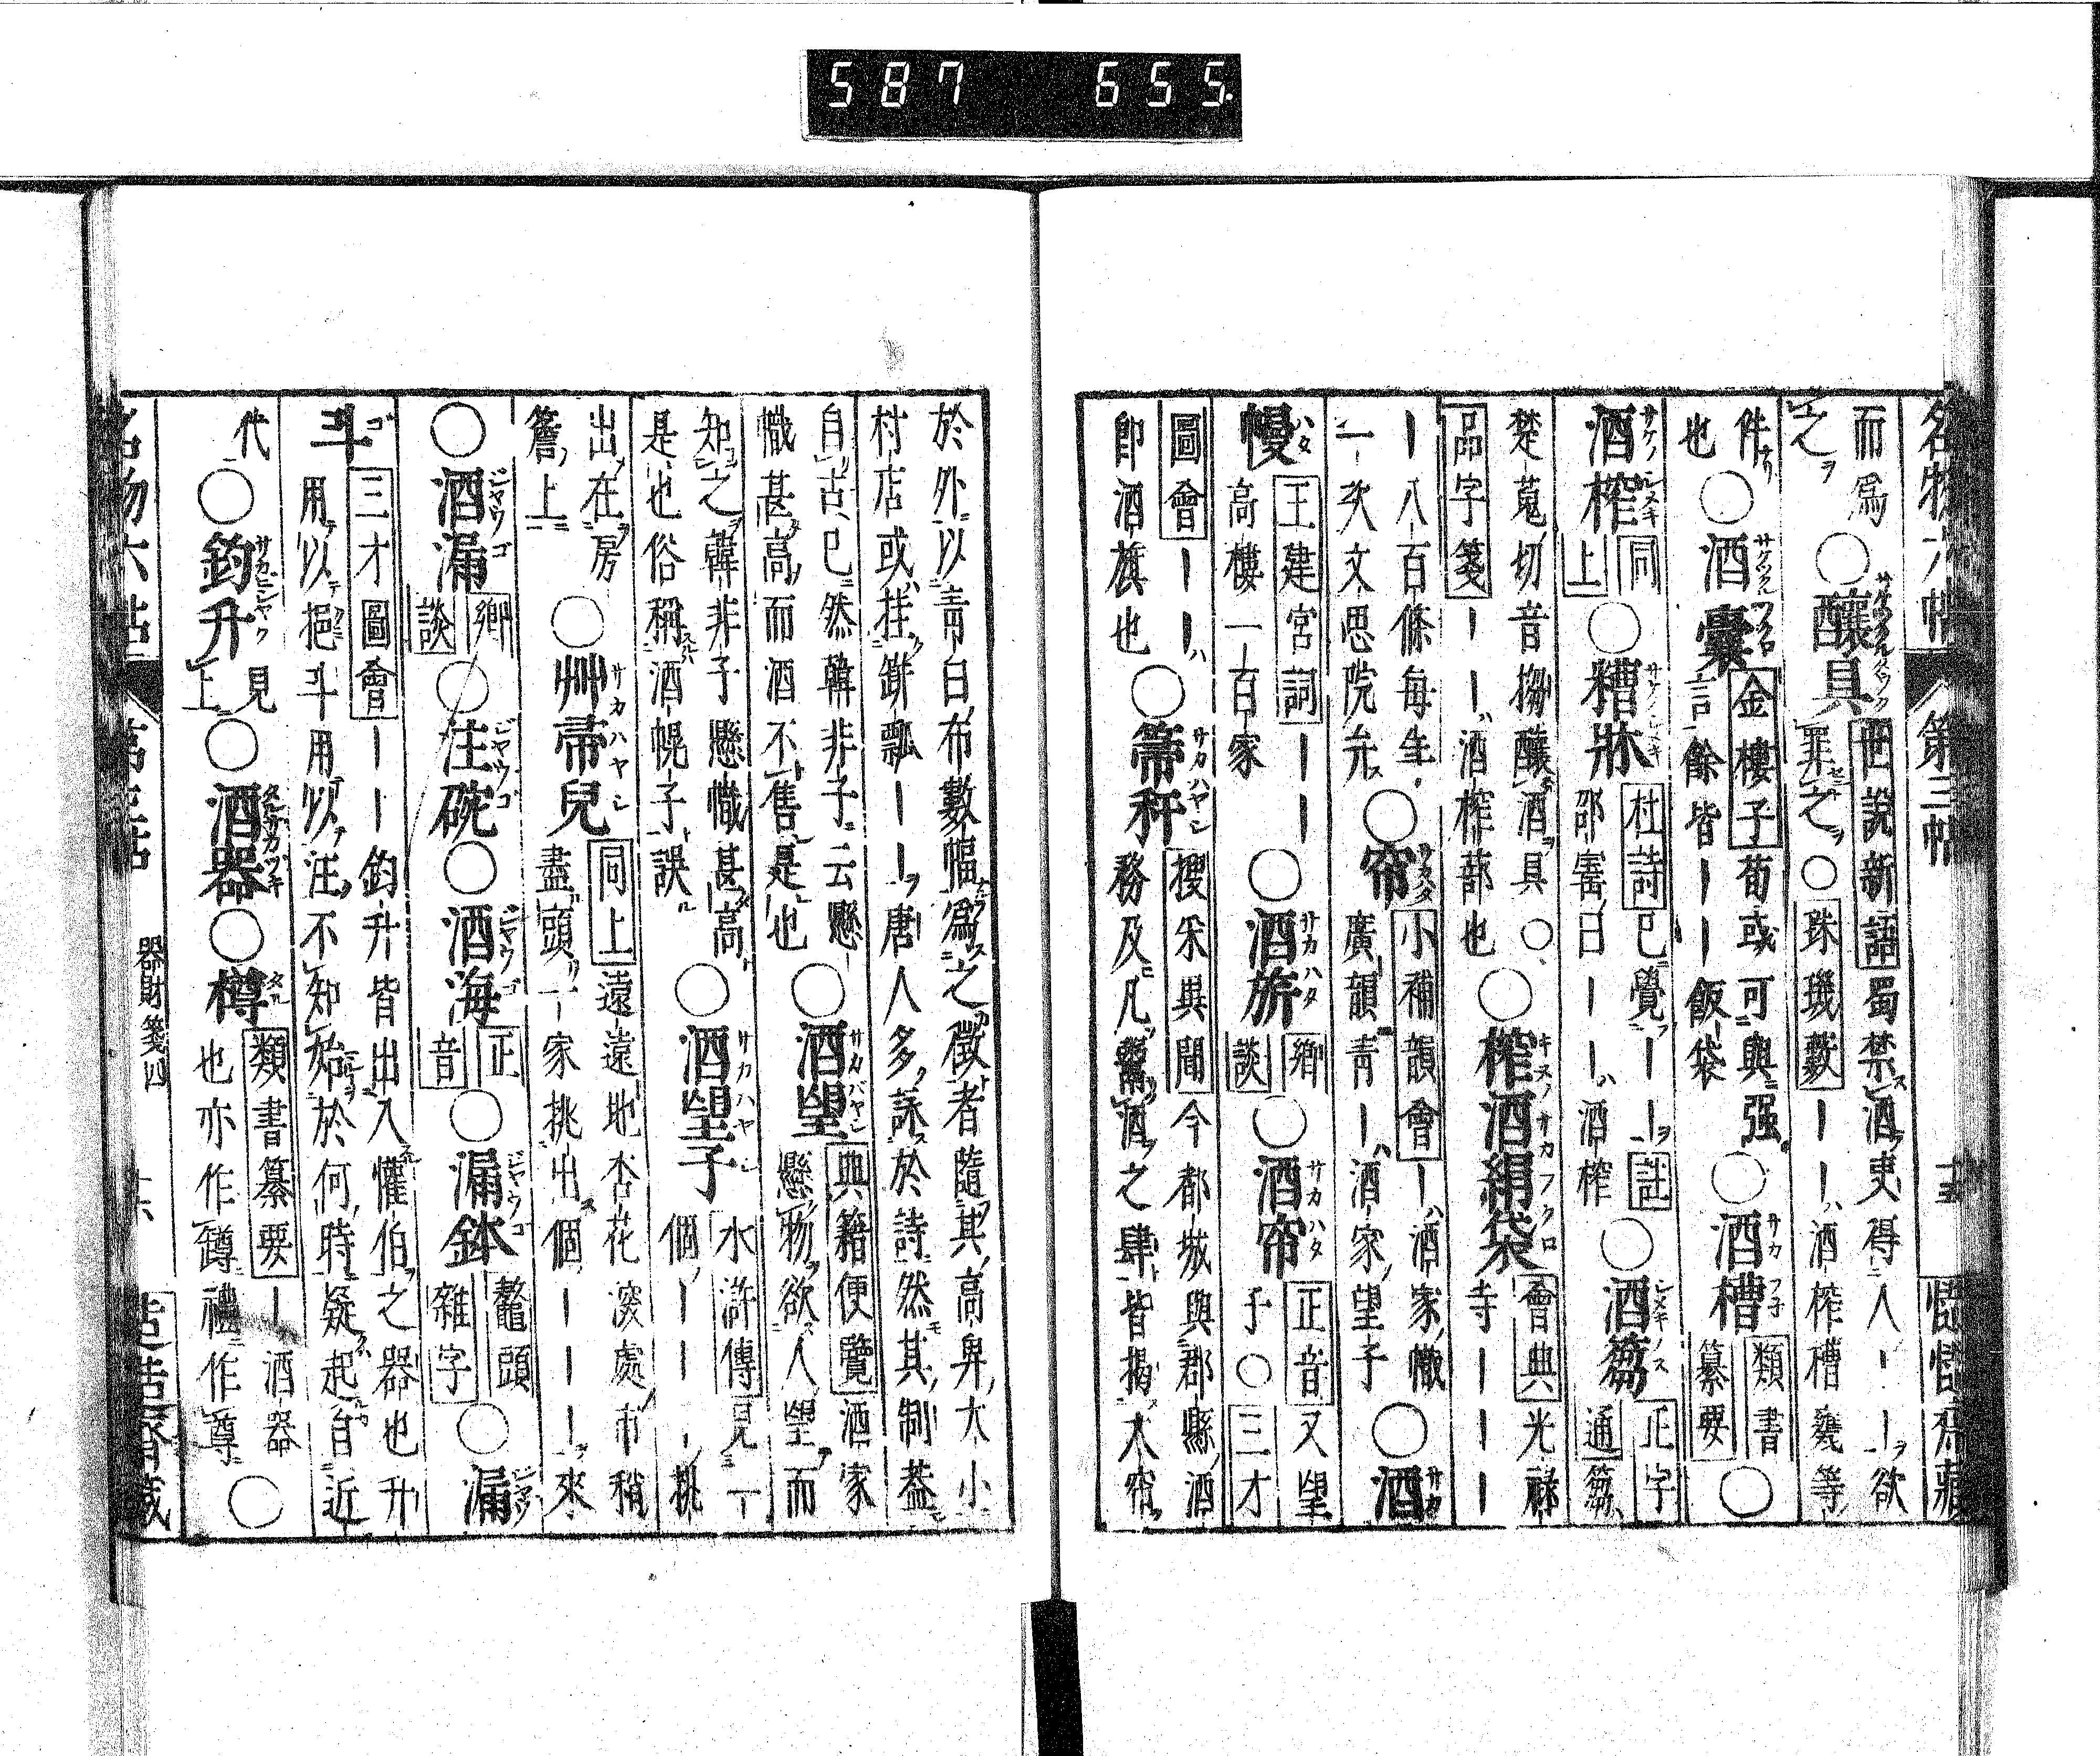 名物六帖 第三帖 十五 慥慥齋藏
而為之○釀具 世說新語蜀禁酒吏得人――欲罪之○珠璣藪――酒榨槽甑等
件也○酒囊 金樓子荀彧可與强言餘皆――飯袋○酒槽 類書纂要○
酒榨 同上○糟牀 杜詩已覺――註邵寶曰――酒榨○酒篘 正字通篘
楚蒐切音搊釀酒具○品字箋――酒榨蔀也○榨酒絹袋 會典光祿寺――――
―八百條每年一次文思院弁○帘 小補韻會―酒家幟廣韻青―酒家望子○酒
幔 王建宮詞――高樓一百家○酒旂 鄉談○酒帘 正音又望子○三才
圖會――即酒旗也○箒秆 搜采異聞今都城與郡縣酒務及凡鬻酒之肆皆揭大帘
於外以青白布數幅為之徵者隨其高卑大小村店或挂缾瓢――唐人多詠於詩然其制蓋
自古已然韓非子云懸幟甚高而酒不售是也○酒望 典籍便覽酒家懸物欲人望而
知之韓非子懸幟甚高是也俗稱酒幌子誤○酒望子 水滸傳見一個―――挑
出在房簷上○艸帚兒 同上遠遠地杏花深處市稍盡頭一家挑出個―――來
○酒漏 鄉談○注碗○酒海 正音○漏鉢 鼇頭雜字○漏
斗 三才圖會――鈞升皆出入懽伯之器也升用以挹斗用以注不知始於何時疑起自近
代○鈞升 見上○酒器○樽 類書纂要―酒器也亦作罇禮作尊○
名物六帖 第三帖 器財箋四 十六 慥慥齋藏
587 655